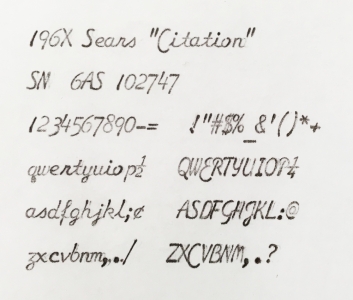 196X Sears "Citation"
SN 6AS 102747
1234567890-= !"#$%_&'()*+
qwertyuiop½ QWERTYUIOP¼
asdfghjkl;¢ ASDFGHJKL:@
zxcvbnm,./ ZXCVBNM,.?